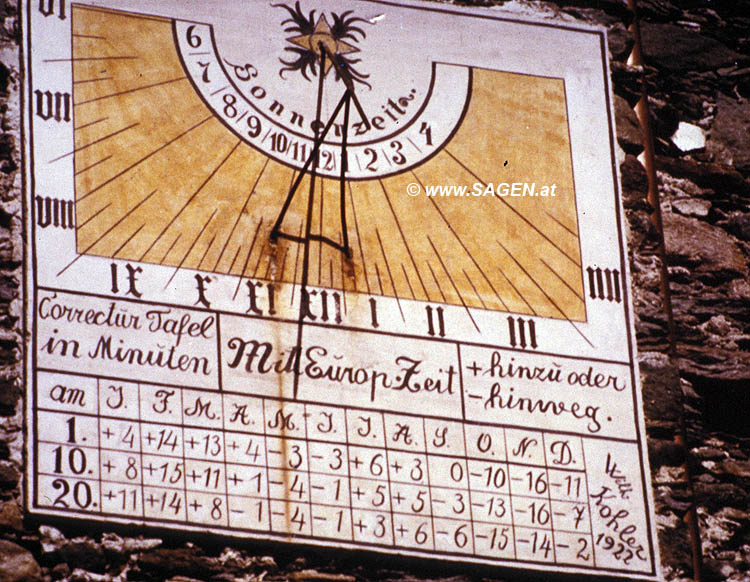 VI
6 7 8 9 10 11 12 1 2 3 4
Sonnenzeit
VII
VIII
© www.SAGEN.at
IX X XI XII I II III IIII
Correctur Tafel
in Minŭten
Mitt Eŭrop Zeit
+ hinzŭ oder
- hinweg.
am J. F. M. A. M. J. J. A. S. O. N. D.
1. +4 +14 +13 +4 -3 -3 +6 +3 0 -10 -16 -11
10. +8 +15 +11 +1 -4 -1 +5 +5 -3 -13 -16 -7
20. +11 +14 +8 -1 -4 -1 +3 +6 -6 -15 -14 -2
Kohler
1922